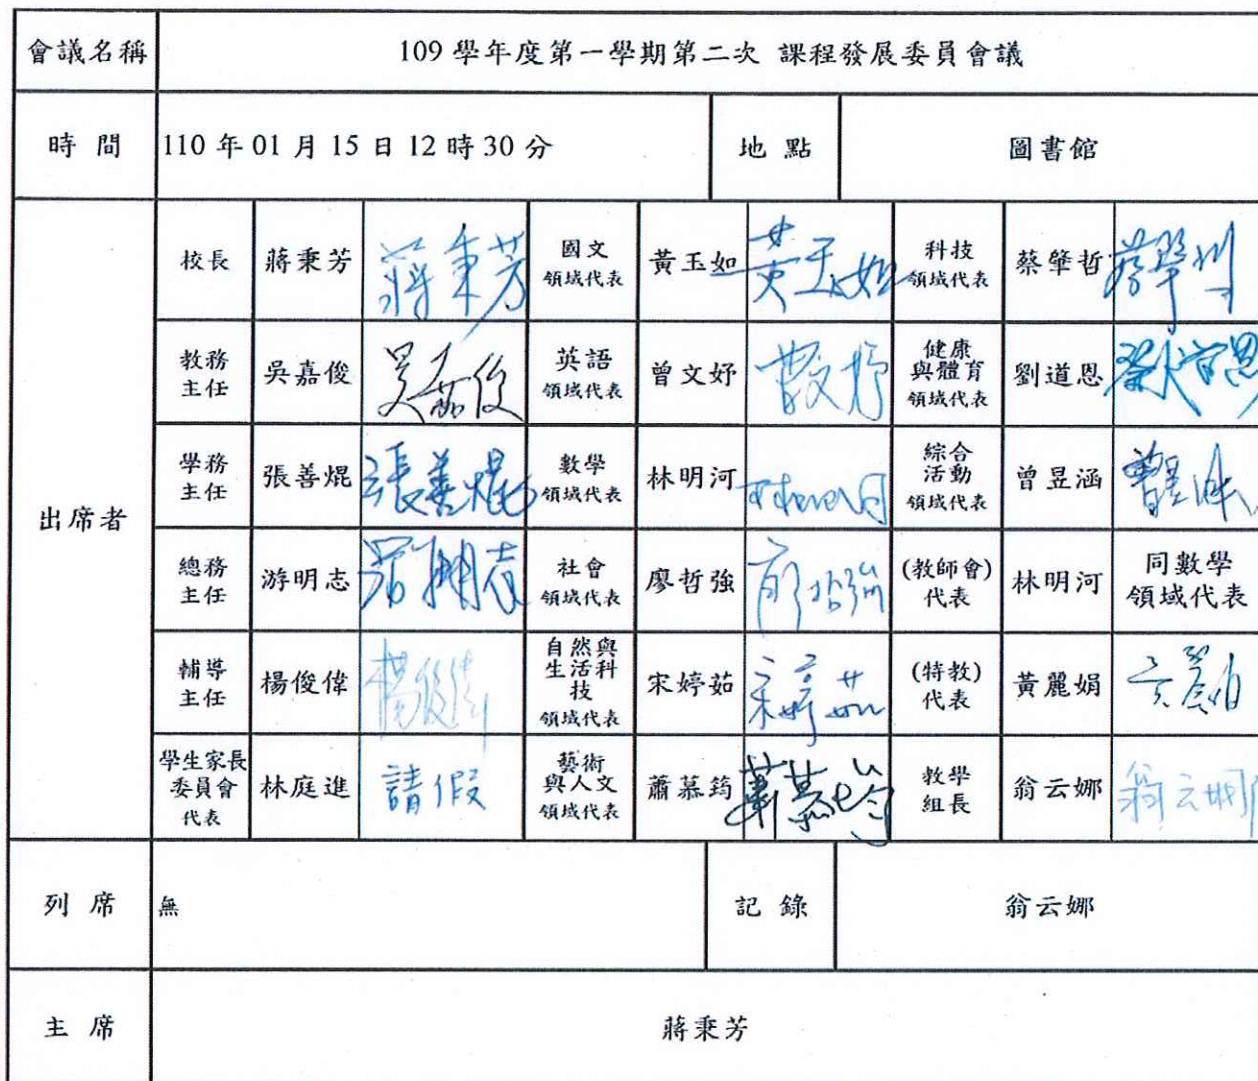 會議名稱 109 學年度第一學期第二次 課程發展委員會議
時 間 110 年 01 月 15 日 12 時 30 分 地 點 圖書館
出席者
校長 蔣秉芳 蔣秉芳 國文 領域代表 黃玉如 黃玉如 科技 領域代表 蔡肇哲
教務 主任 吳嘉俊 吳嘉俊 英語 領域代表 曾文妤 曾文妤 健康 與體育 領域代表 劉道恩 劉道恩
學務 主任 張善焜 張善焜 數學 領域代表 林明河 林明河 綜合 活動 領域代表 曾昱涵 曾昱涵
總務 主任 游明志 社會 領域代表 廖哲強 廖哲強 (教師會) 代表 林明河 同數學 領域代表
輔導 主任 楊俊偉 楊俊偉 自然與 生活科 技 領域代表 宋婷茹 宋婷茹 (特教) 代表 黃麗娟
學生家長 委員會 代表 林庭進 請假 藝術 與人文 領域代表 蕭慕筠 蕭慕筠 教學 組長 翁云娜 翁云娜
列 席 無 記 錄 翁云娜
主 席 蔣秉芳